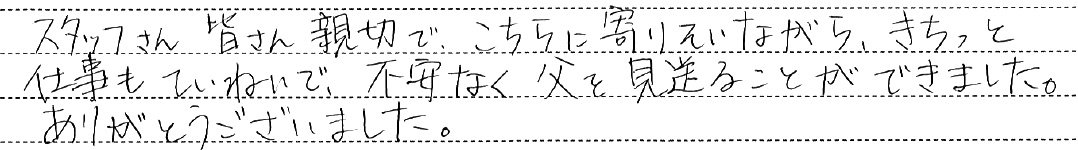 スタッフさん 皆さん 親切で、こちらに寄りそいながら、きちっと
仕事もていねいで、不安なく 父を見送ることができました。
ありがとうございました。